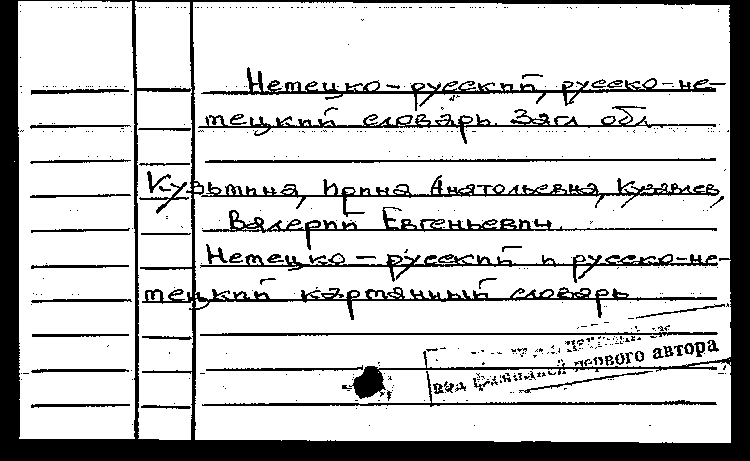 Немецко-русский, русско-не-
мецкий словарь. Загл обл.
Кузьмина, Ирина Анатольевна, Кувялев,
Валерий Евгеньевич.
Немецко-русский и русско-не-
мецкий карманный словарь
под фамилией первого автора